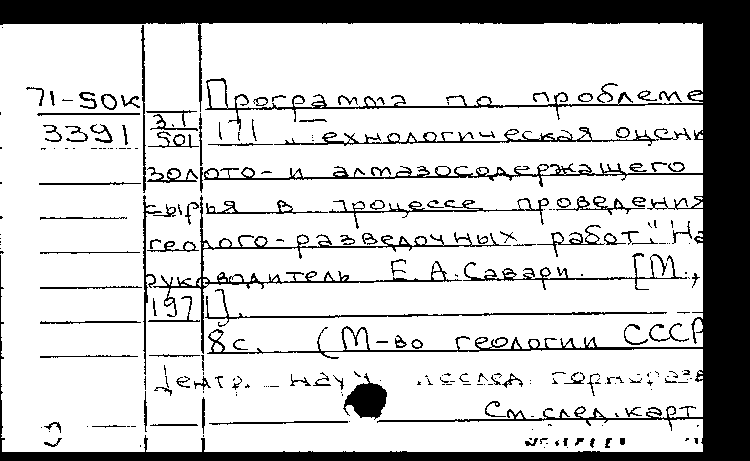 71-50к Программа по проблеме
3391 3.1/501 171 „Технологическая оценк
золото- и алмазосодержащего
сырья в процессе проведения
геолого-разведочных работ." На
руководитель Е.А.Савари. [М.,
1971].
8с. (М-во геологии СССР
Центр. науч. исслед. горноразв
См.след.карт